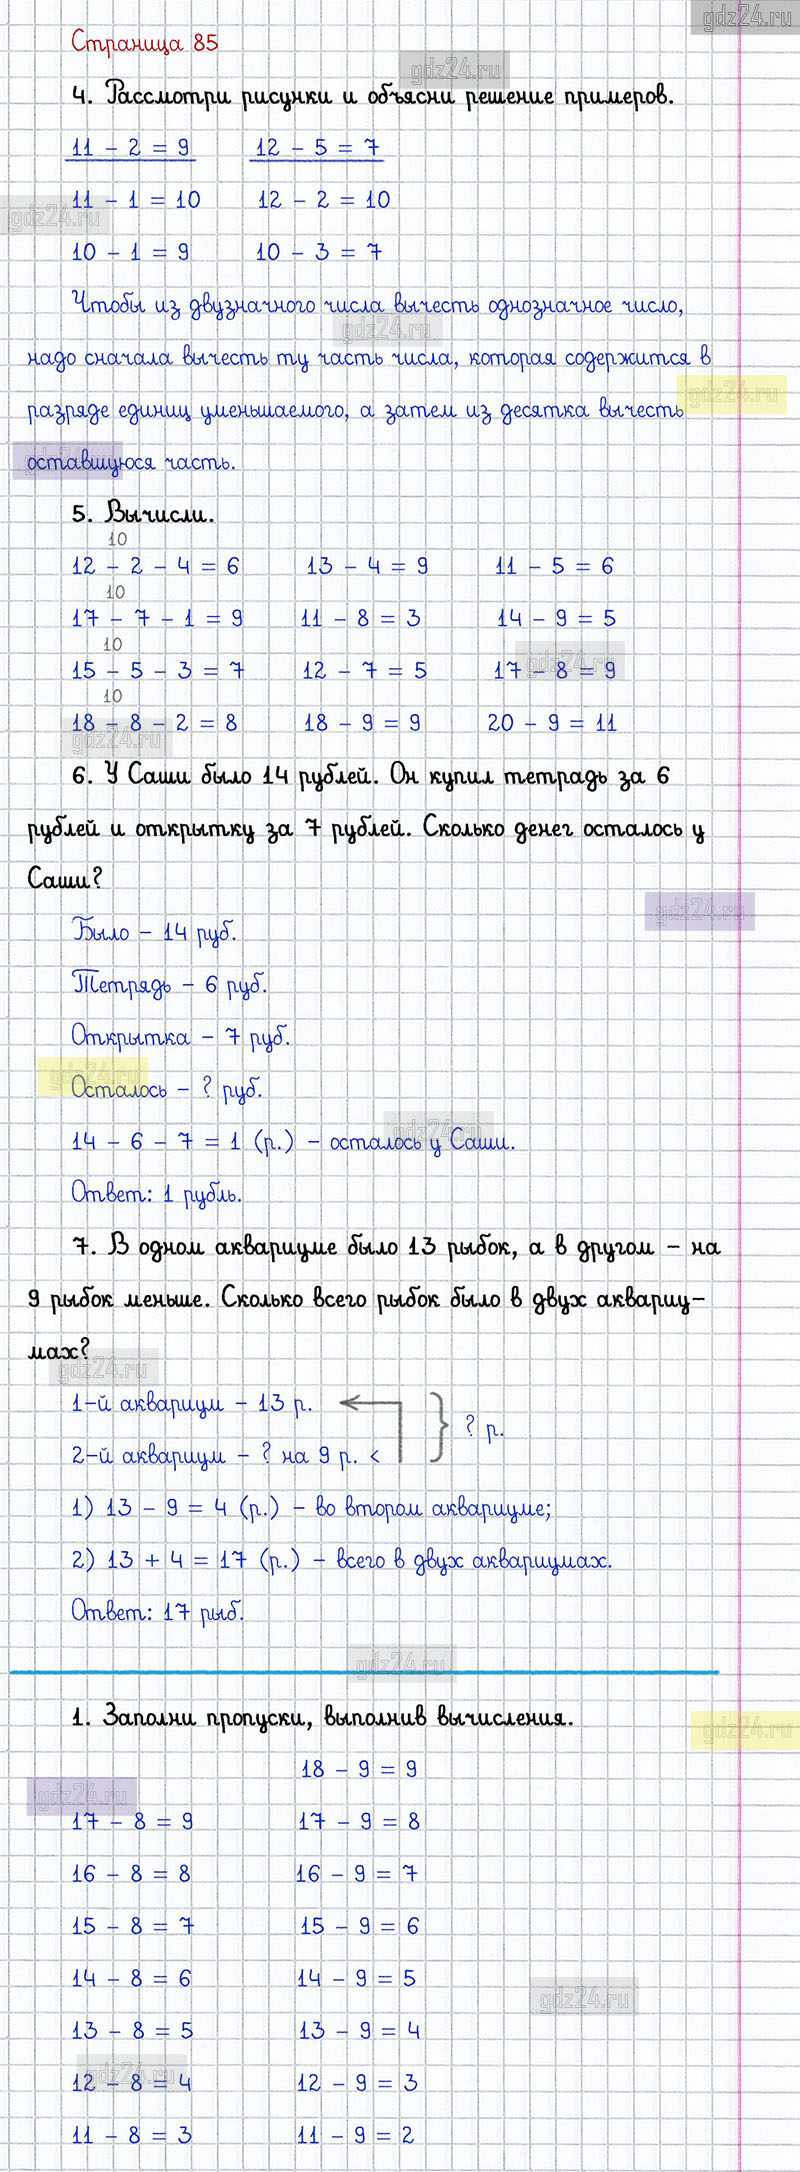 gdz24.ru
Страница 85
gdz24.ru
4. Рассмотри рисунки и объясни решение примеров.
11 - 2 = 9 12 - 5 = 7
11 - 1 = 10 12 - 2 = 10
gdz24.ru
10 - 1 = 9 10 - 3 = 7
Чтобы из двузначного числа вычесть однозначное число,
gdz24.ru
надо сначала вычесть ту часть числа, которая содержится в
gdz24.ru
разряде единиц уменьшаемого, а затем из десятка вычесть
gdz24.ru
оставшуюся часть.
5. Вычисли.
10
12 - 2 - 4 = 6 13 - 4 = 9 11 - 5 = 6
10
17 - 7 - 1 = 9 11 - 8 = 3 14 - 9 = 5
10
gdz24.ru
15 - 5 - 3 = 7 12 - 7 = 5 17 - 8 = 9
10
18 - 8 - 2 = 8 18 - 9 = 9 20 - 9 = 11
gdz24.ru
6. У Саши было 14 рублей. Он купил тетрадь за 6
рублей и открытку за 7 рублей. Сколько денег осталось у
Саши?
gdz24.ru
Было - 14 руб.
Тетрадь - 6 руб.
Открытка - 7 руб.
gdz24.ru
Осталось - ? руб.
gdz24.ru
14 - 6 - 7 = 1 (р.) - осталось у Саши.
Ответ: 1 рубль.
7. В одном аквариуме было 13 рыбок, а в другом - на
9 рыбок меньше. Сколько всего рыбок было в двух аквариу-
мах?
gdz24.ru
1-й аквариум - 13 р.
? р.
2-й аквариум - ? на 9 р. <
1) 13 - 9 = 4 (р.) - во втором аквариуме;
2) 13 + 4 = 17 (р.) - всего в двух аквариумах.
Ответ: 17 рыб.
gdz24.ru
1. Заполни пропуски, выполнив вычисления.
gdz24.ru
18 - 9 = 9
gdz24.ru
17 - 8 = 9 17 - 9 = 8
16 - 8 = 8 16 - 9 = 7
15 - 8 = 7 15 - 9 = 6
14 - 8 = 6 14 - 9 = 5
gdz24.ru
13 - 8 = 5 13 - 9 = 4
gdz24.ru
12 - 8 = 4 12 - 9 = 3
11 - 8 = 3 11 - 9 = 2